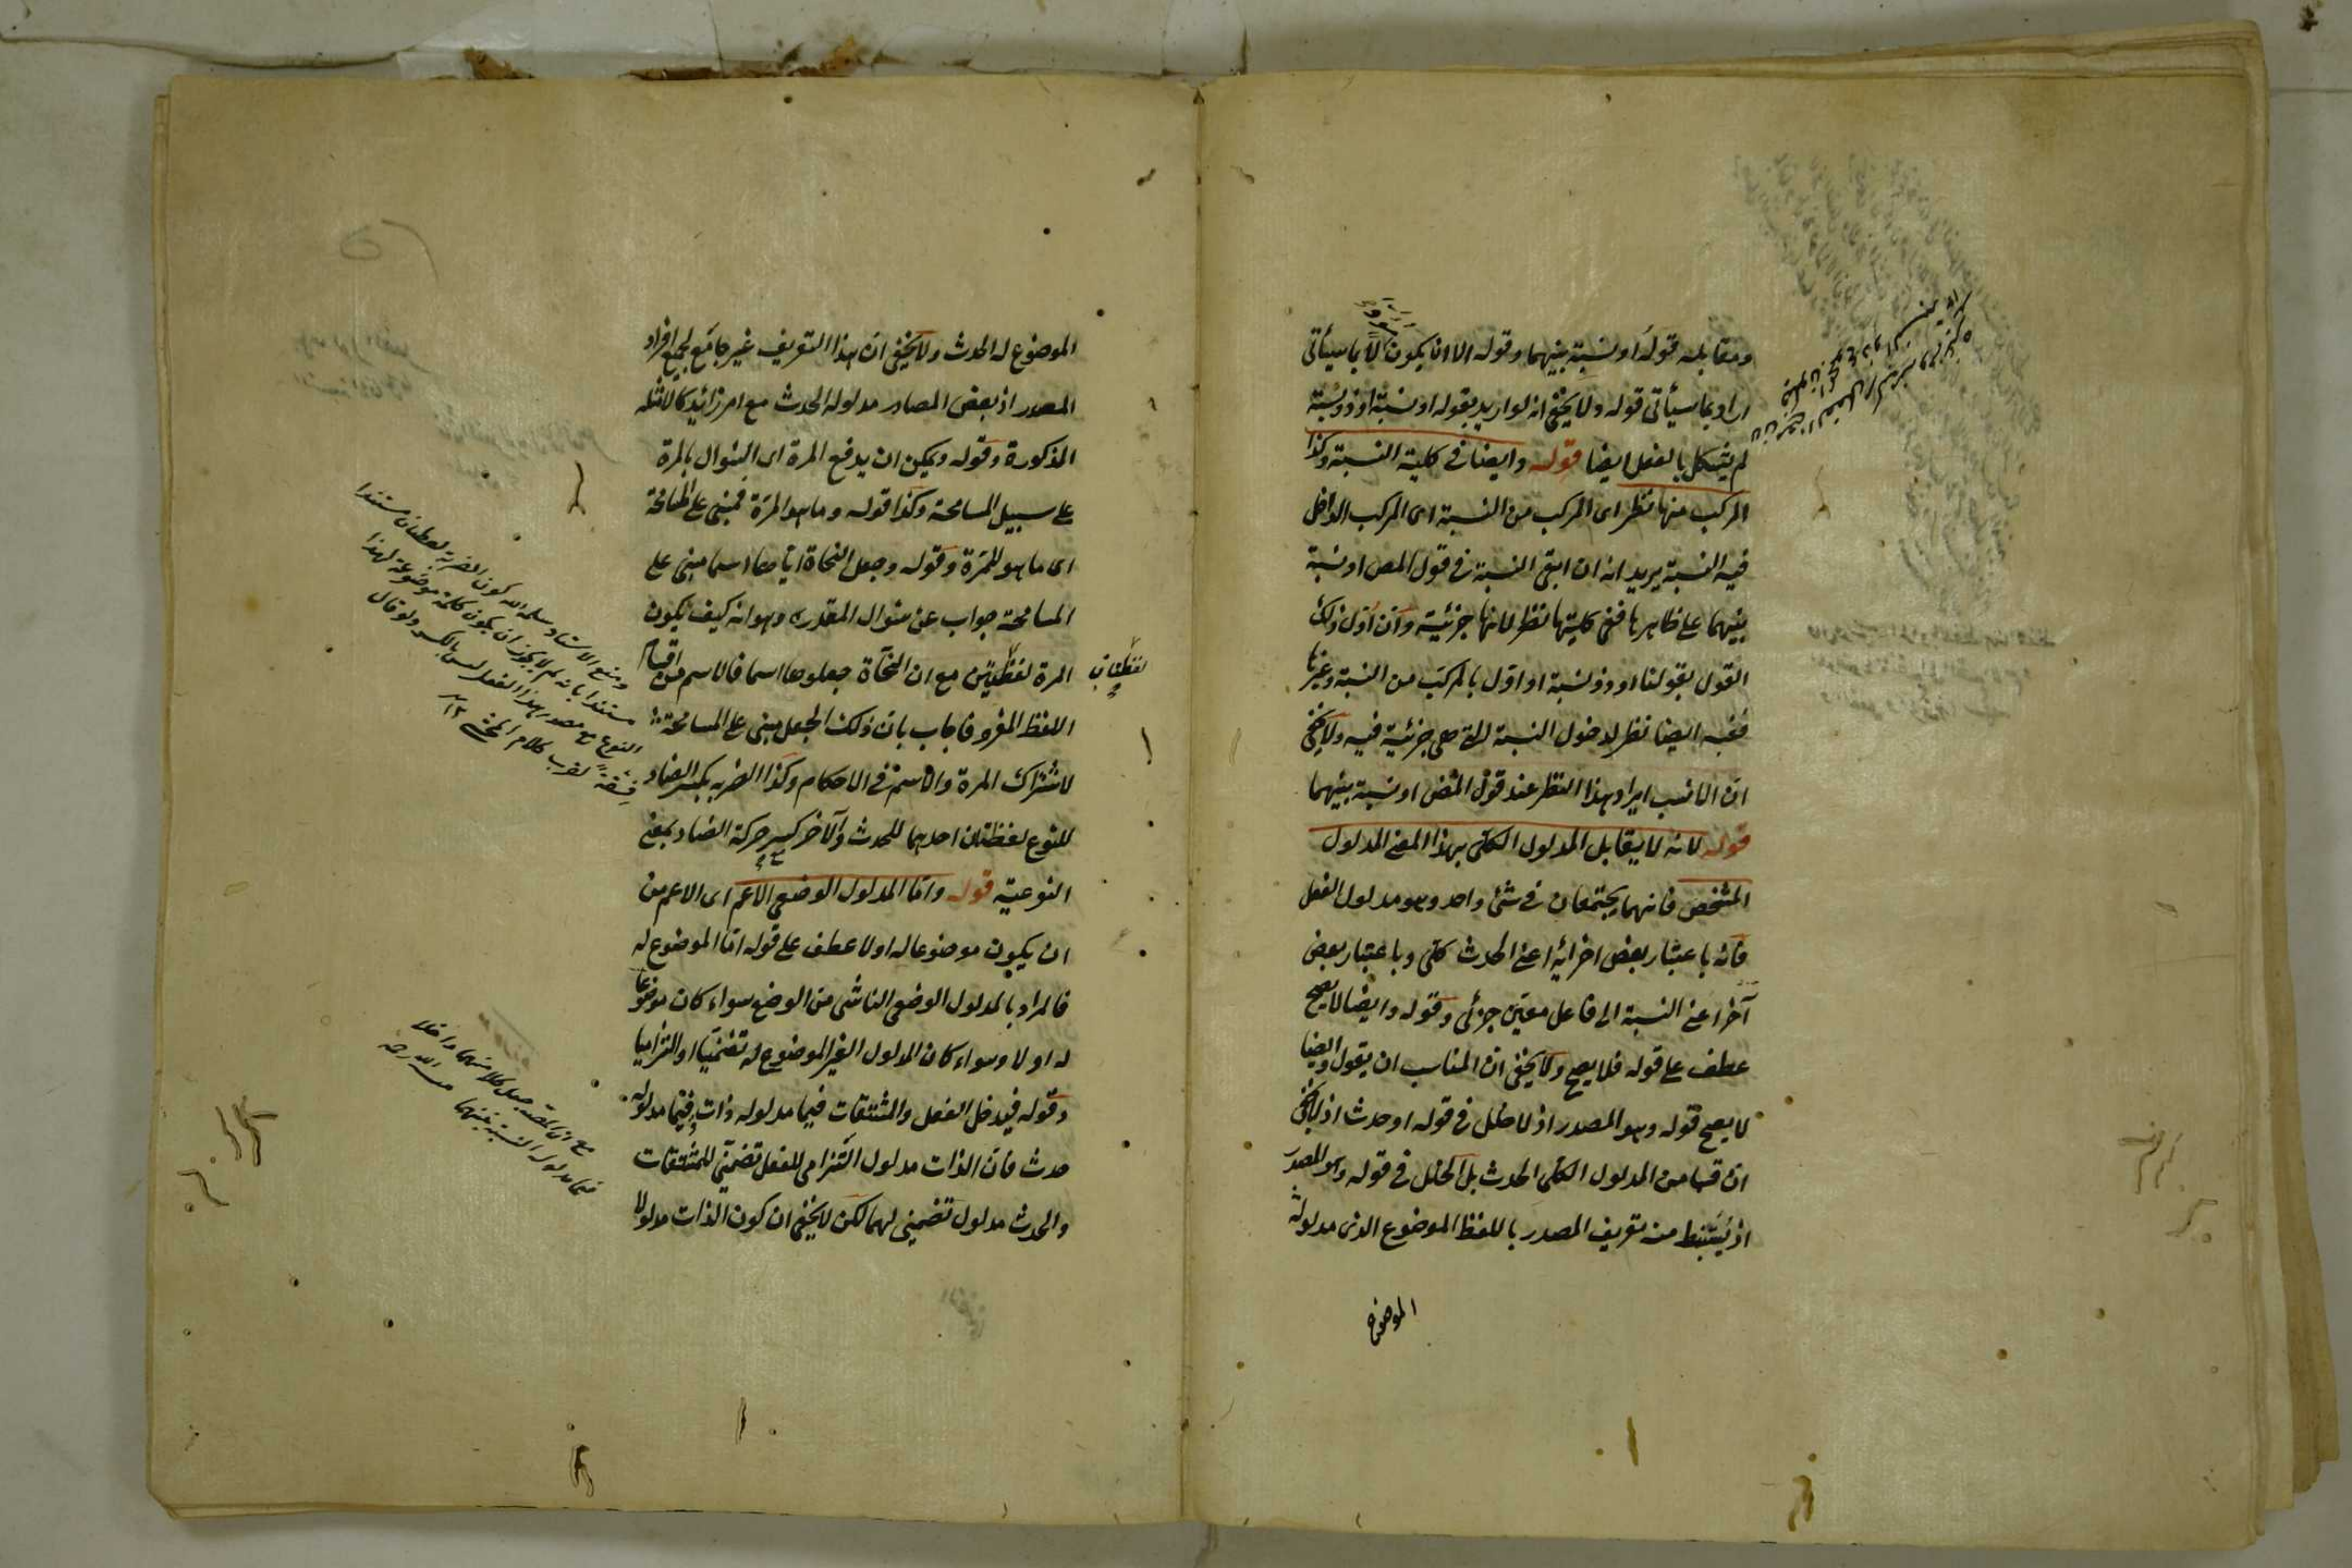 ومقابله قوله او نسبة بينهما وقوله الا ان يكون لا بما سيأتى
اراد بما سيأتى قوله ولا يخفى انه لو اريد بقوله او نسبة او ذو نسبة
لم يشكل بالفعل ايضا قوله وايضا فى كلية النسبة وكذا
المركب منها نظر اى المركب من النسبة اى المركب الداخل
فيه النسبة يريد انه ان ابقى النسبة فى قول المص او نسبة
بينهما على ظاهرها ففى كليتها نظر لانها جزئية وان اول ذلك
القول بقولنا او ذو نسبة او اول بالمركب من النسبة وغيرها
ففيه ايضا نظر لدخول النسبة التى هى جزئية فيه ولا يخفى
ان الانسب ايراد هذا النظر عند قول المص او نسبة بينهما
قوله لانه لا يقابل المدلول الكلى بهذا المعنى المدلول
المشخص فانهما يجتمعان فى شئ واحد وهو مدلول الفعل
فانه باعتبار بعض اجزائه اعنى الحدث كلى وباعتبار بعض
آخر اعنى النسبة الى فاعل معين جزئى وقوله وايضا لا يصح
عطف على قوله فلا يصح ولا يخفى ان المناسب ان يقول وايضا
لا يصح قوله وهو المصدر اذ لا خلل فى قوله او حدث اذ لا يخفى
ان قسما من المدلول الكلى الحدث بل الخلل فى قوله وهو المصدر
اذ يستنبط منه تعريف المصدر باللفظ الموضوع الذى مدلوله
الموضوع
الموضوع له الحدث ولا يخفى ان هذا التعريف غير جامع لجميع افراد
المصدر اذ بعض المصادر مدلوله الحدث مع امر زائد كالامثلة
المذكورة وقوله ويمكن ان يدفع المرة اى السؤال بالمرة
على سبيل المسامحة وكذا قوله وما هو المرة فمبنى على المسامحة
اى ما هو للمرة وقوله وجعل النحاة اياها اسما مبنى على
المسامحة جواب عن سؤال المقدر وهو انه كيف يكون
المرة لفظتين مع ان النحاة جعلوها اسما فالاسم من اقسام
لفظتان
اللفظ المفرد فاجاب بان ذلك الجعل مبنى على المسامحة
لاشتراك المرة والاسم فى الاحكام وكذا الضربة بكسر الضاد
للنوع لفظتان احدهما للحدث والآخر كسر حركة الضاد بمعنى
النوعية قوله واما المدلول الوضعى الاعم اى الاعم من
ان يكون موضوعا له او لا عطف على قوله اما الموضوع له
فالمراد بالمدلول الوضعى الناشى من الوضع سواء كان موضوعا
له او لا وسواء كان المدلول الغير الموضوع له تضمنيا او التزاميا
وقوله فيدخل الفعل والمشتقات فيما مدلوله ذات وفيما مدلوله
حدث فان الذات مدلول التزامى للفعل تضمنى للمشتقات
والحدث مدلول تضمنى لهما لكن لا يخفى ان كون الذات مدلولا
ومنع الاستاد سلمه الله كون الضربة لفظتان مستندا
مستندا بانه لم لا يجوز ان يكون كلمة موضوعة لهذا
النوع
مع ان المصـ جعل كلا منهما داخلا
فيما مدلول النسبة بينهما